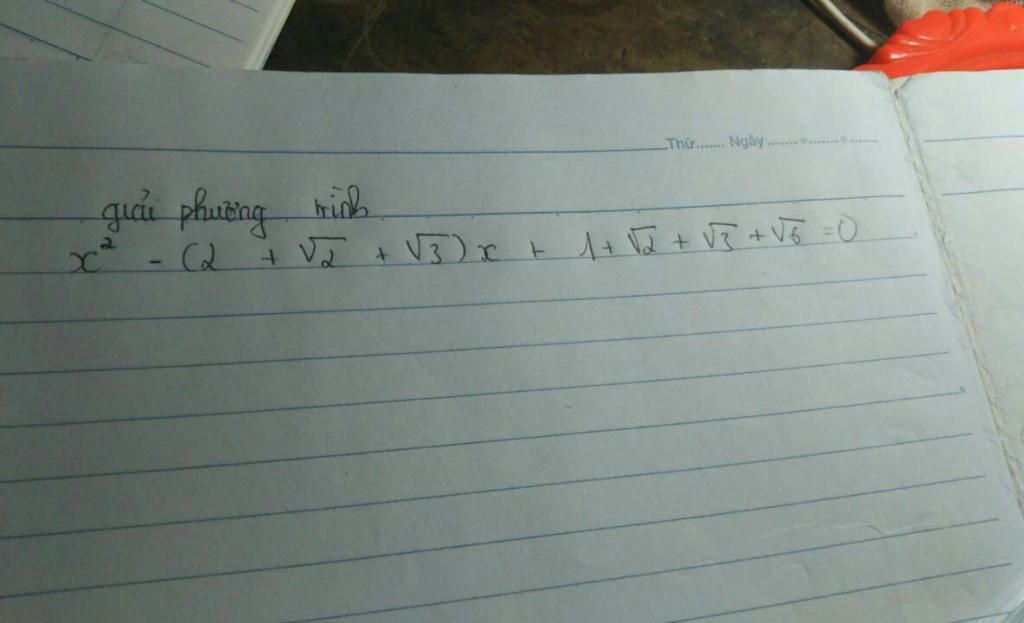 Thứ....... Ngày.....................
giải phương trình
x² - (2 + √2 + √3)x + 1 + √2 + √3 + √6 = 0